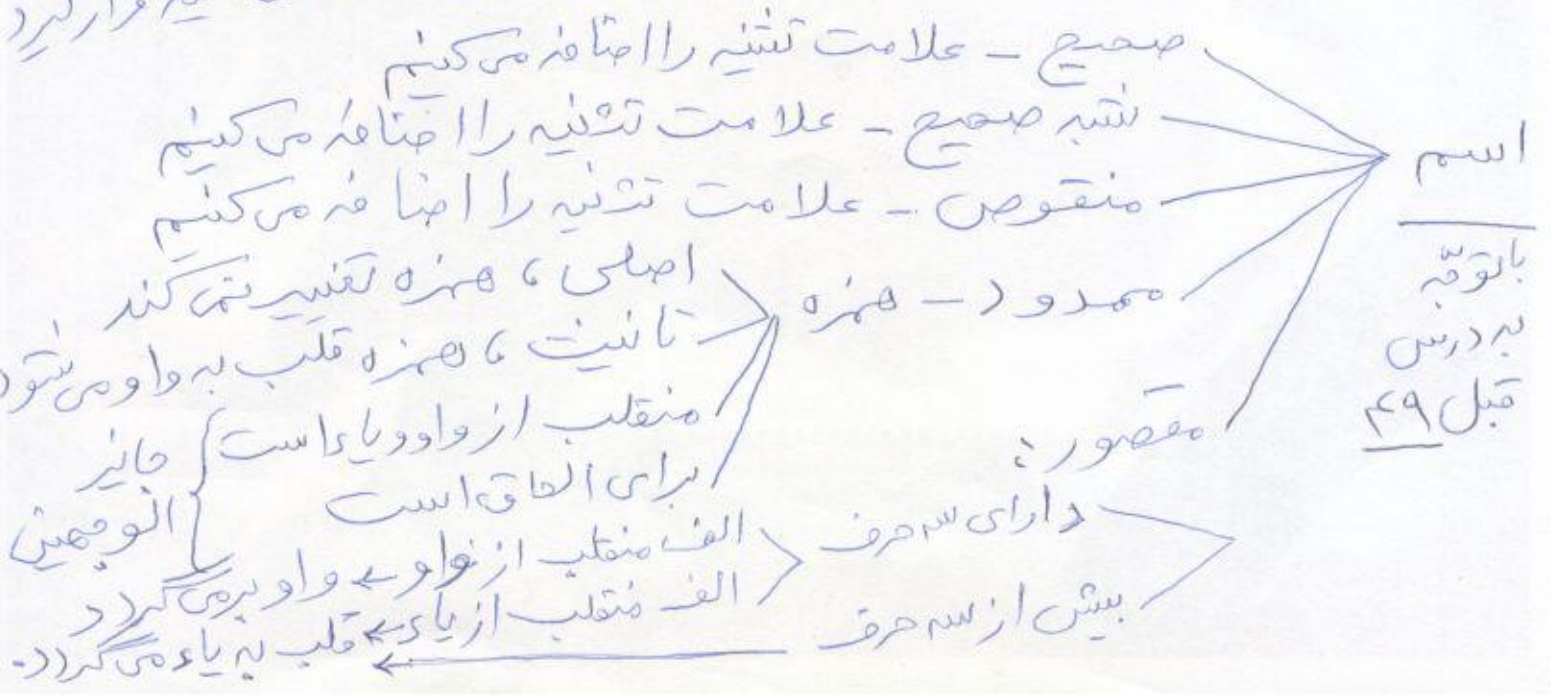 قرار گیرد
اسم
با توجّه
به درس
قبل ۴۹
صحیح - علامت تثنیه را اضافه می کنیم
شبه صحیح - علامت تثنیه را اضافه می کنیم
منقوص - علامت تثنیه را اضافه می کنیم
ممدود - همزه
اصلی ، همزه تغییر نمی کند
تانیث ، همزه قلب به واو می شود
منقلب از واو و یاء است
برای الحاق است
جایز
الوجهین
مقصور :
دارای سه حرف
الف منقلب از واو ← واو برمی گردد
الف منقلب از یاء ← قلب به یاء می گردد.
بیش از سه حرف ←